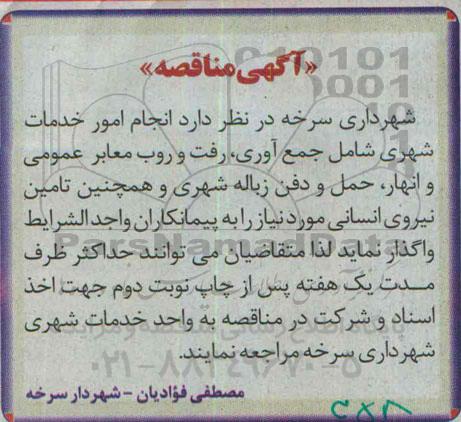 «آگهی مناقصه»
شهرداری سرخه در نظر دارد انجام امور خدمات
شهری شامل جمع آوری، رفت و روب معابر عمومی
و انهار، حمل و دفن زباله شهری و همچنین تامین
نیروی انسانی مورد نیاز را به پیمانکاران واجد الشرایط
واگذار نماید لذا متقاضیان می توانند حداکثر ظرف
مدت یک هفته پس از چاپ نوبت دوم جهت اخذ
اسناد و شرکت در مناقصه به واحد خدمات شهری
شهرداری سرخه مراجعه نمایند.
مصطفی فؤادیان - شهردار سرخه
ParsNamadData
۰۲۱-۸۸۳۴۹۶۷۰-۵